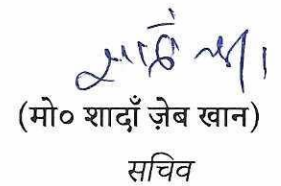 (मो० शादाँ ज़ेब खान)
सचिव